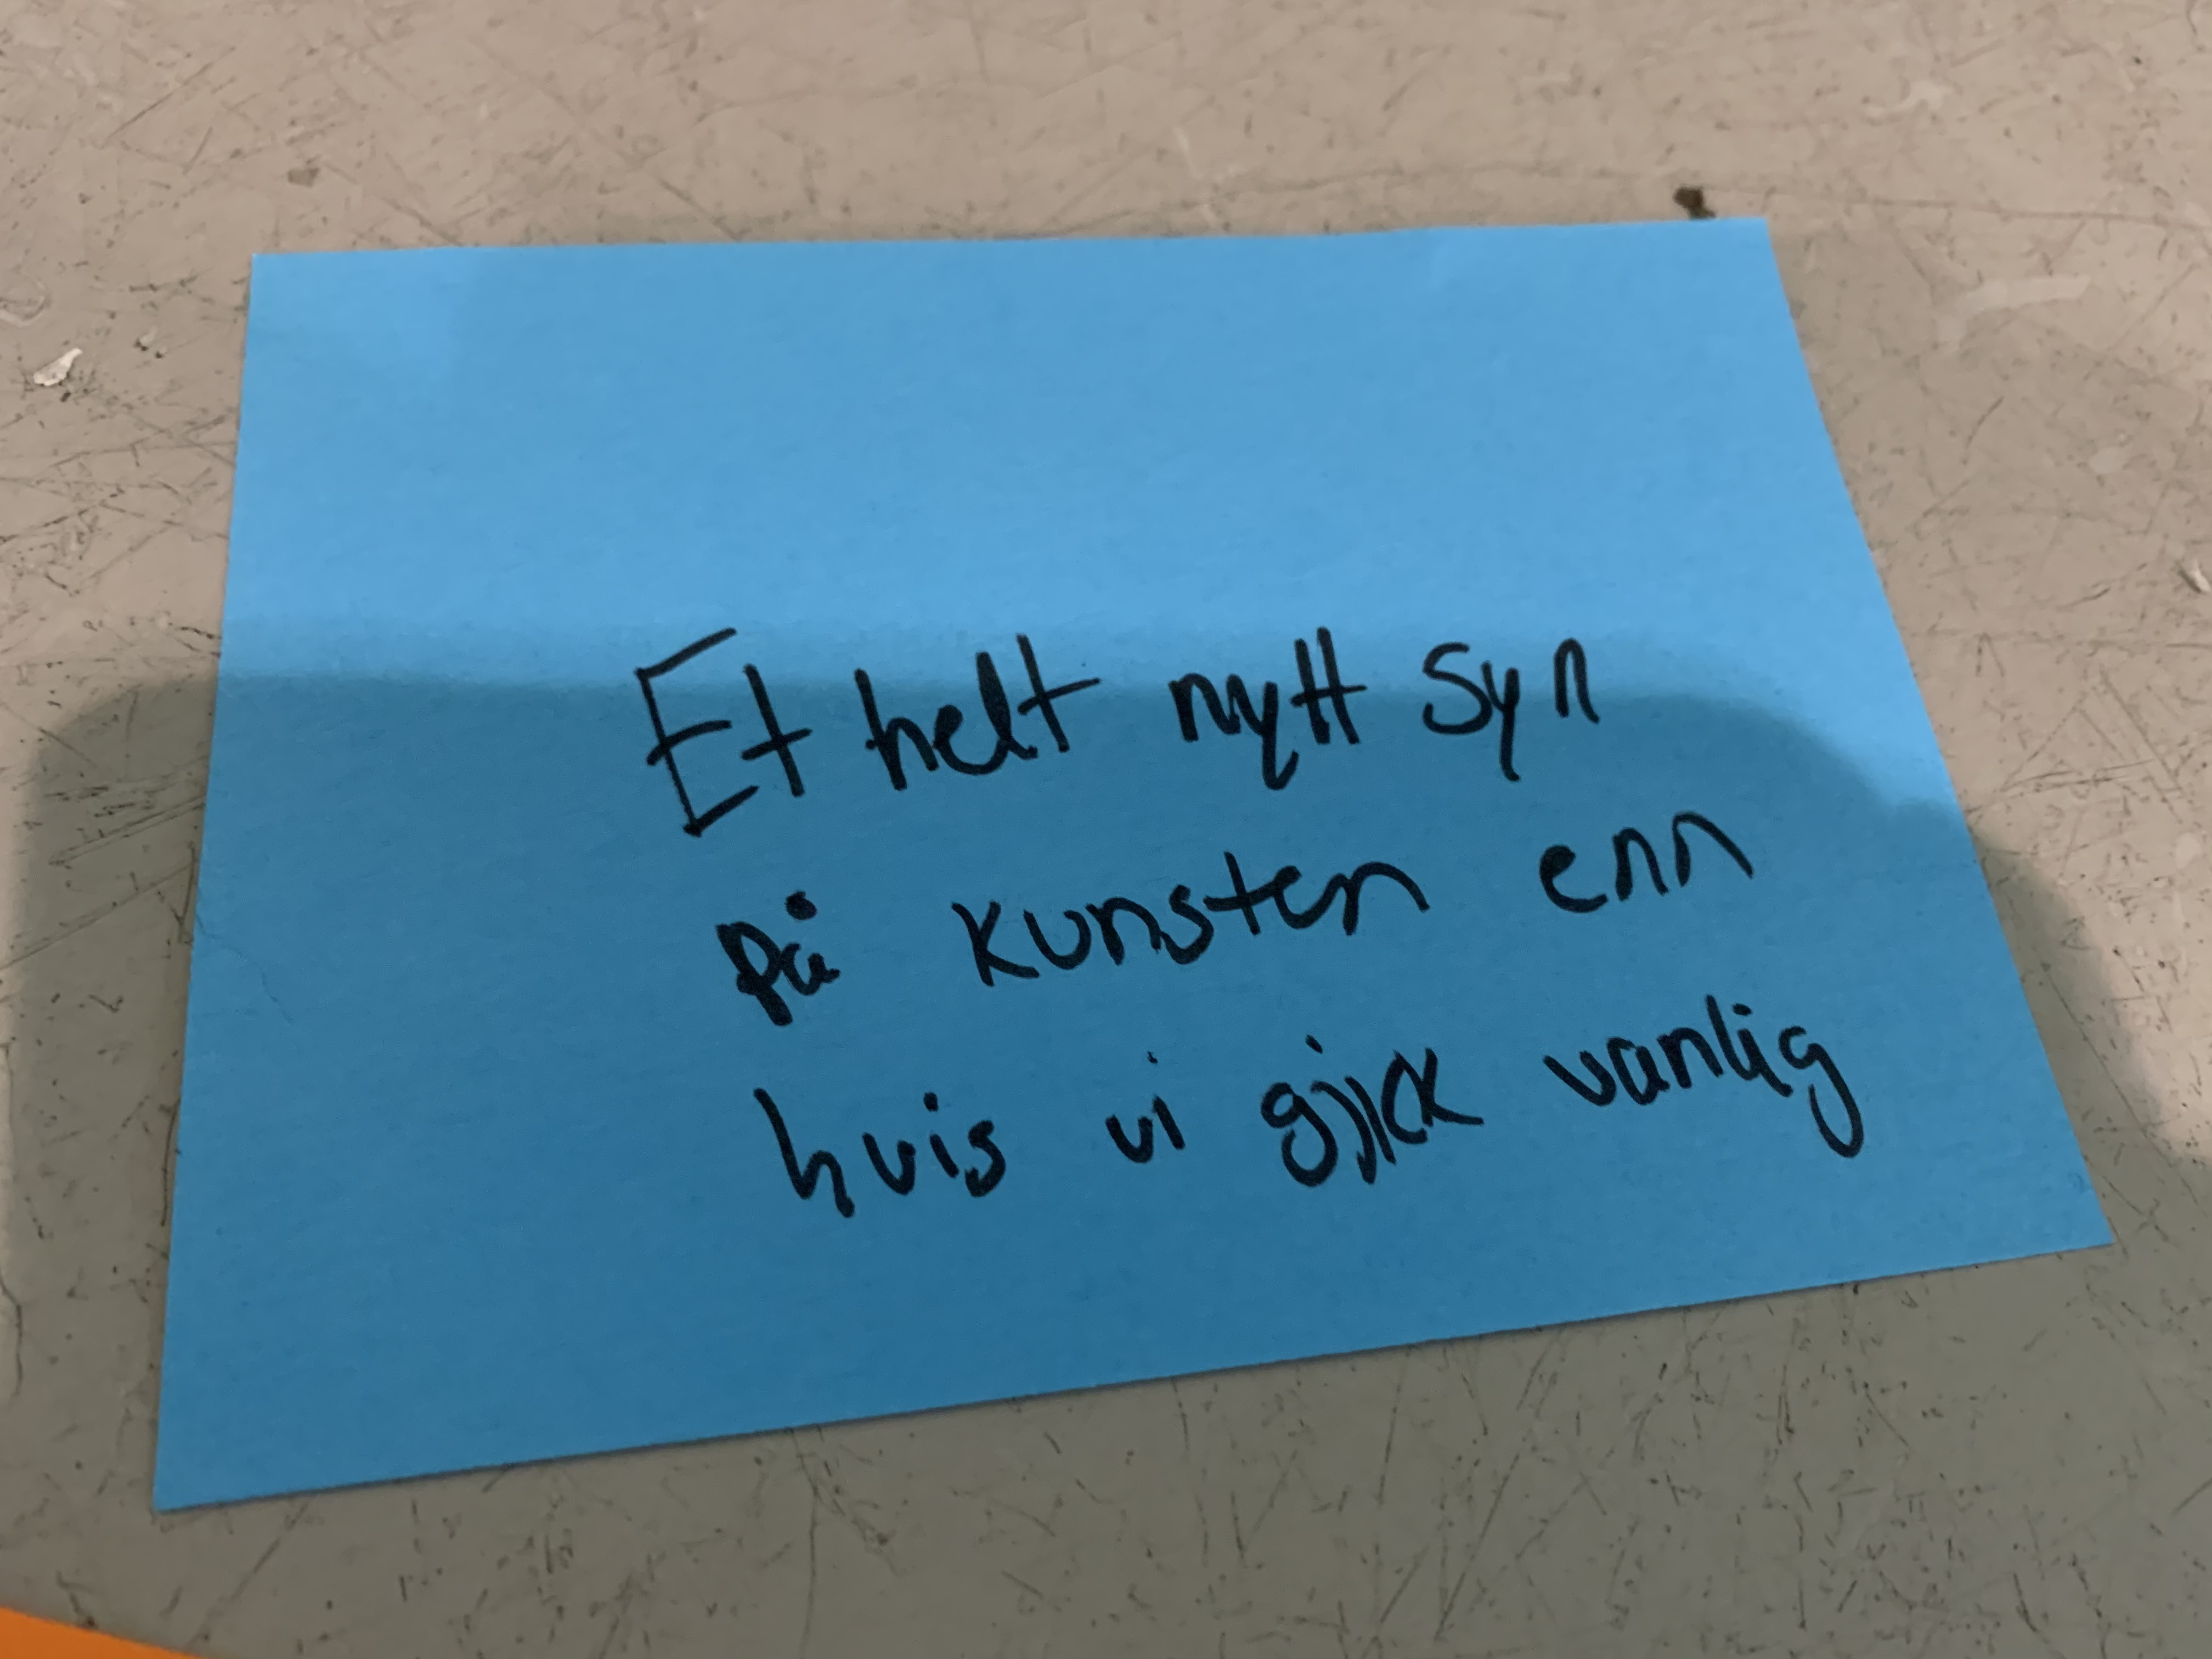 Et helt nytt syn
på kunsten enn
hvis vi gjick vanlig